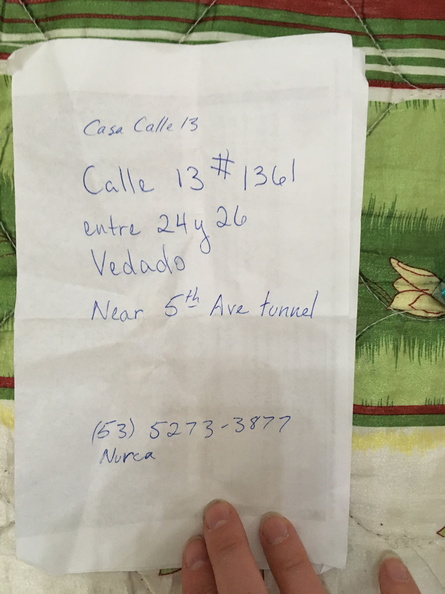 Casa Calle 13
Calle 13 # 1361
entre 24 y 26
Vedado
Near 5th Ave tunnel
(53) 5273-3877
Nurca